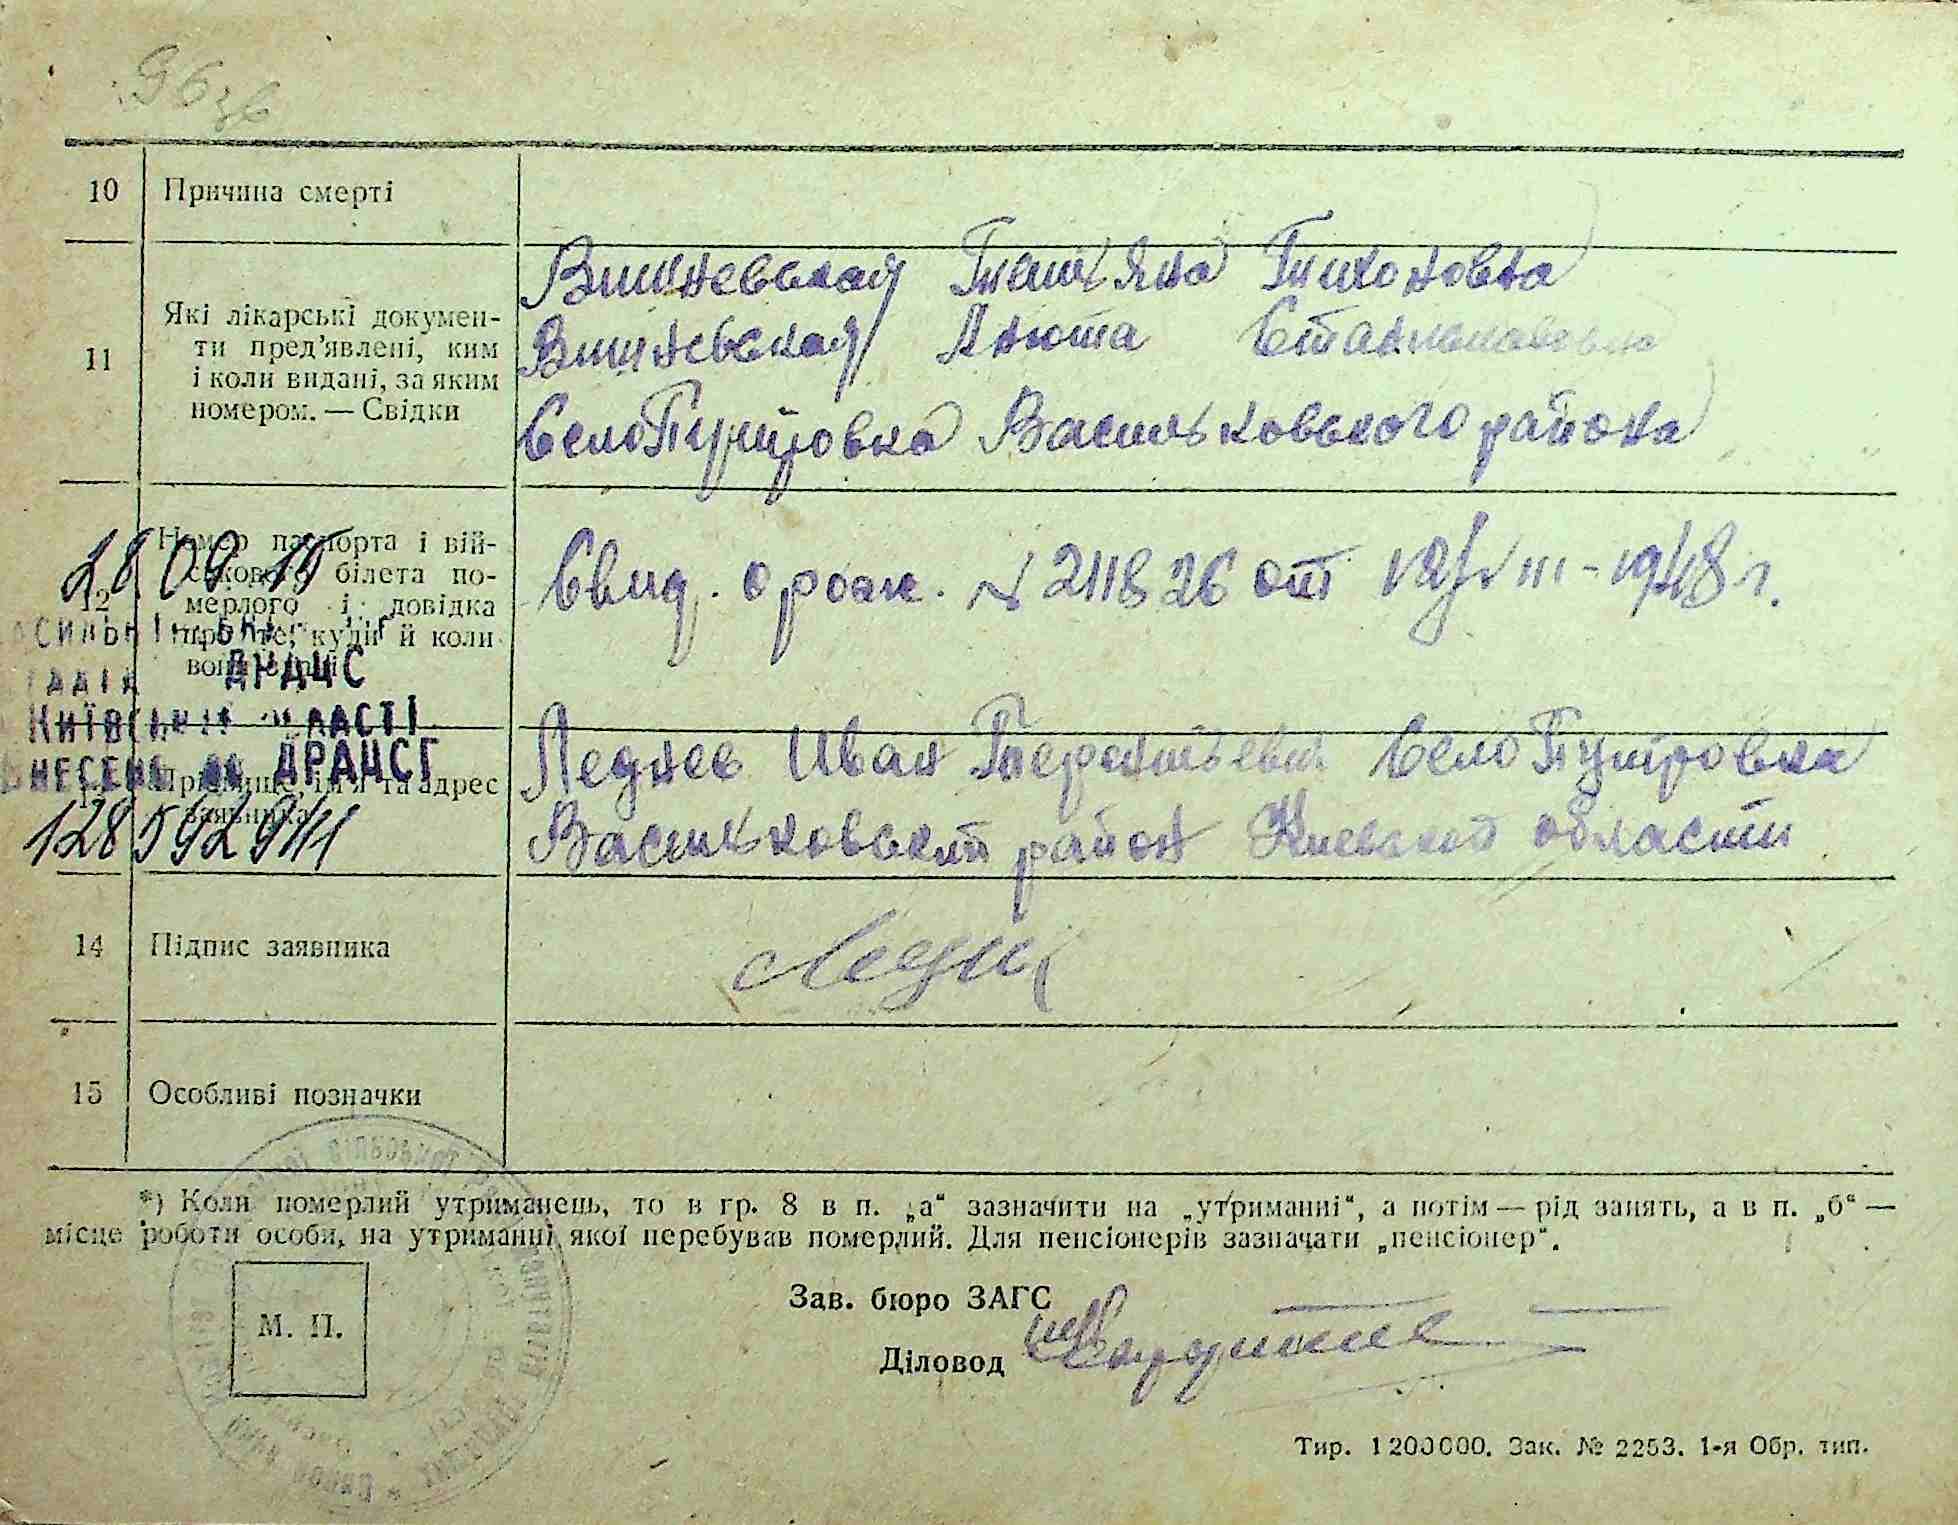 10 Причина смерті
11 Які лікарські докумен-
ти пред’явлені, ким
і коли видані, за яким
номером. — Свідки
Вишневская Татьяна Тихоновна
Вишневская Анюта Станиславовна
Село Путровка Васильковського района
12 Номер паспорта і вій-
ськового білета по-
мерлого і довідка
про те, куди й коли
вони здані
Свид. о рож. № 211826 от III-1948 г.
28 09 15
ДРАЦС
КИЇВСЬКІЙ ОБЛАСТІ
ВНЕСЕНО ДО ДРАЦСГ
12859294
13 Прізвище, ім’я та адрес
заявника
Леднев Иван Терентьевич Село Путровка
Васильковский район Киевской области
14 Підпис заявника
15 Особливі позначки
*) Коли померлий утриманець, то в гр. 8 в п. „а“ зазначити на „утриманні“, а потім — рід занять, а в п. „б“ —
місце роботи особи, на утриманні якої перебував померлий. Для пенсіонерів зазначати „пенсіонер“.
М. П.
Зав. бюро ЗАГС
Діловод
Тир. 1200000. Зак. № 2253. 1-я Обр. тип.